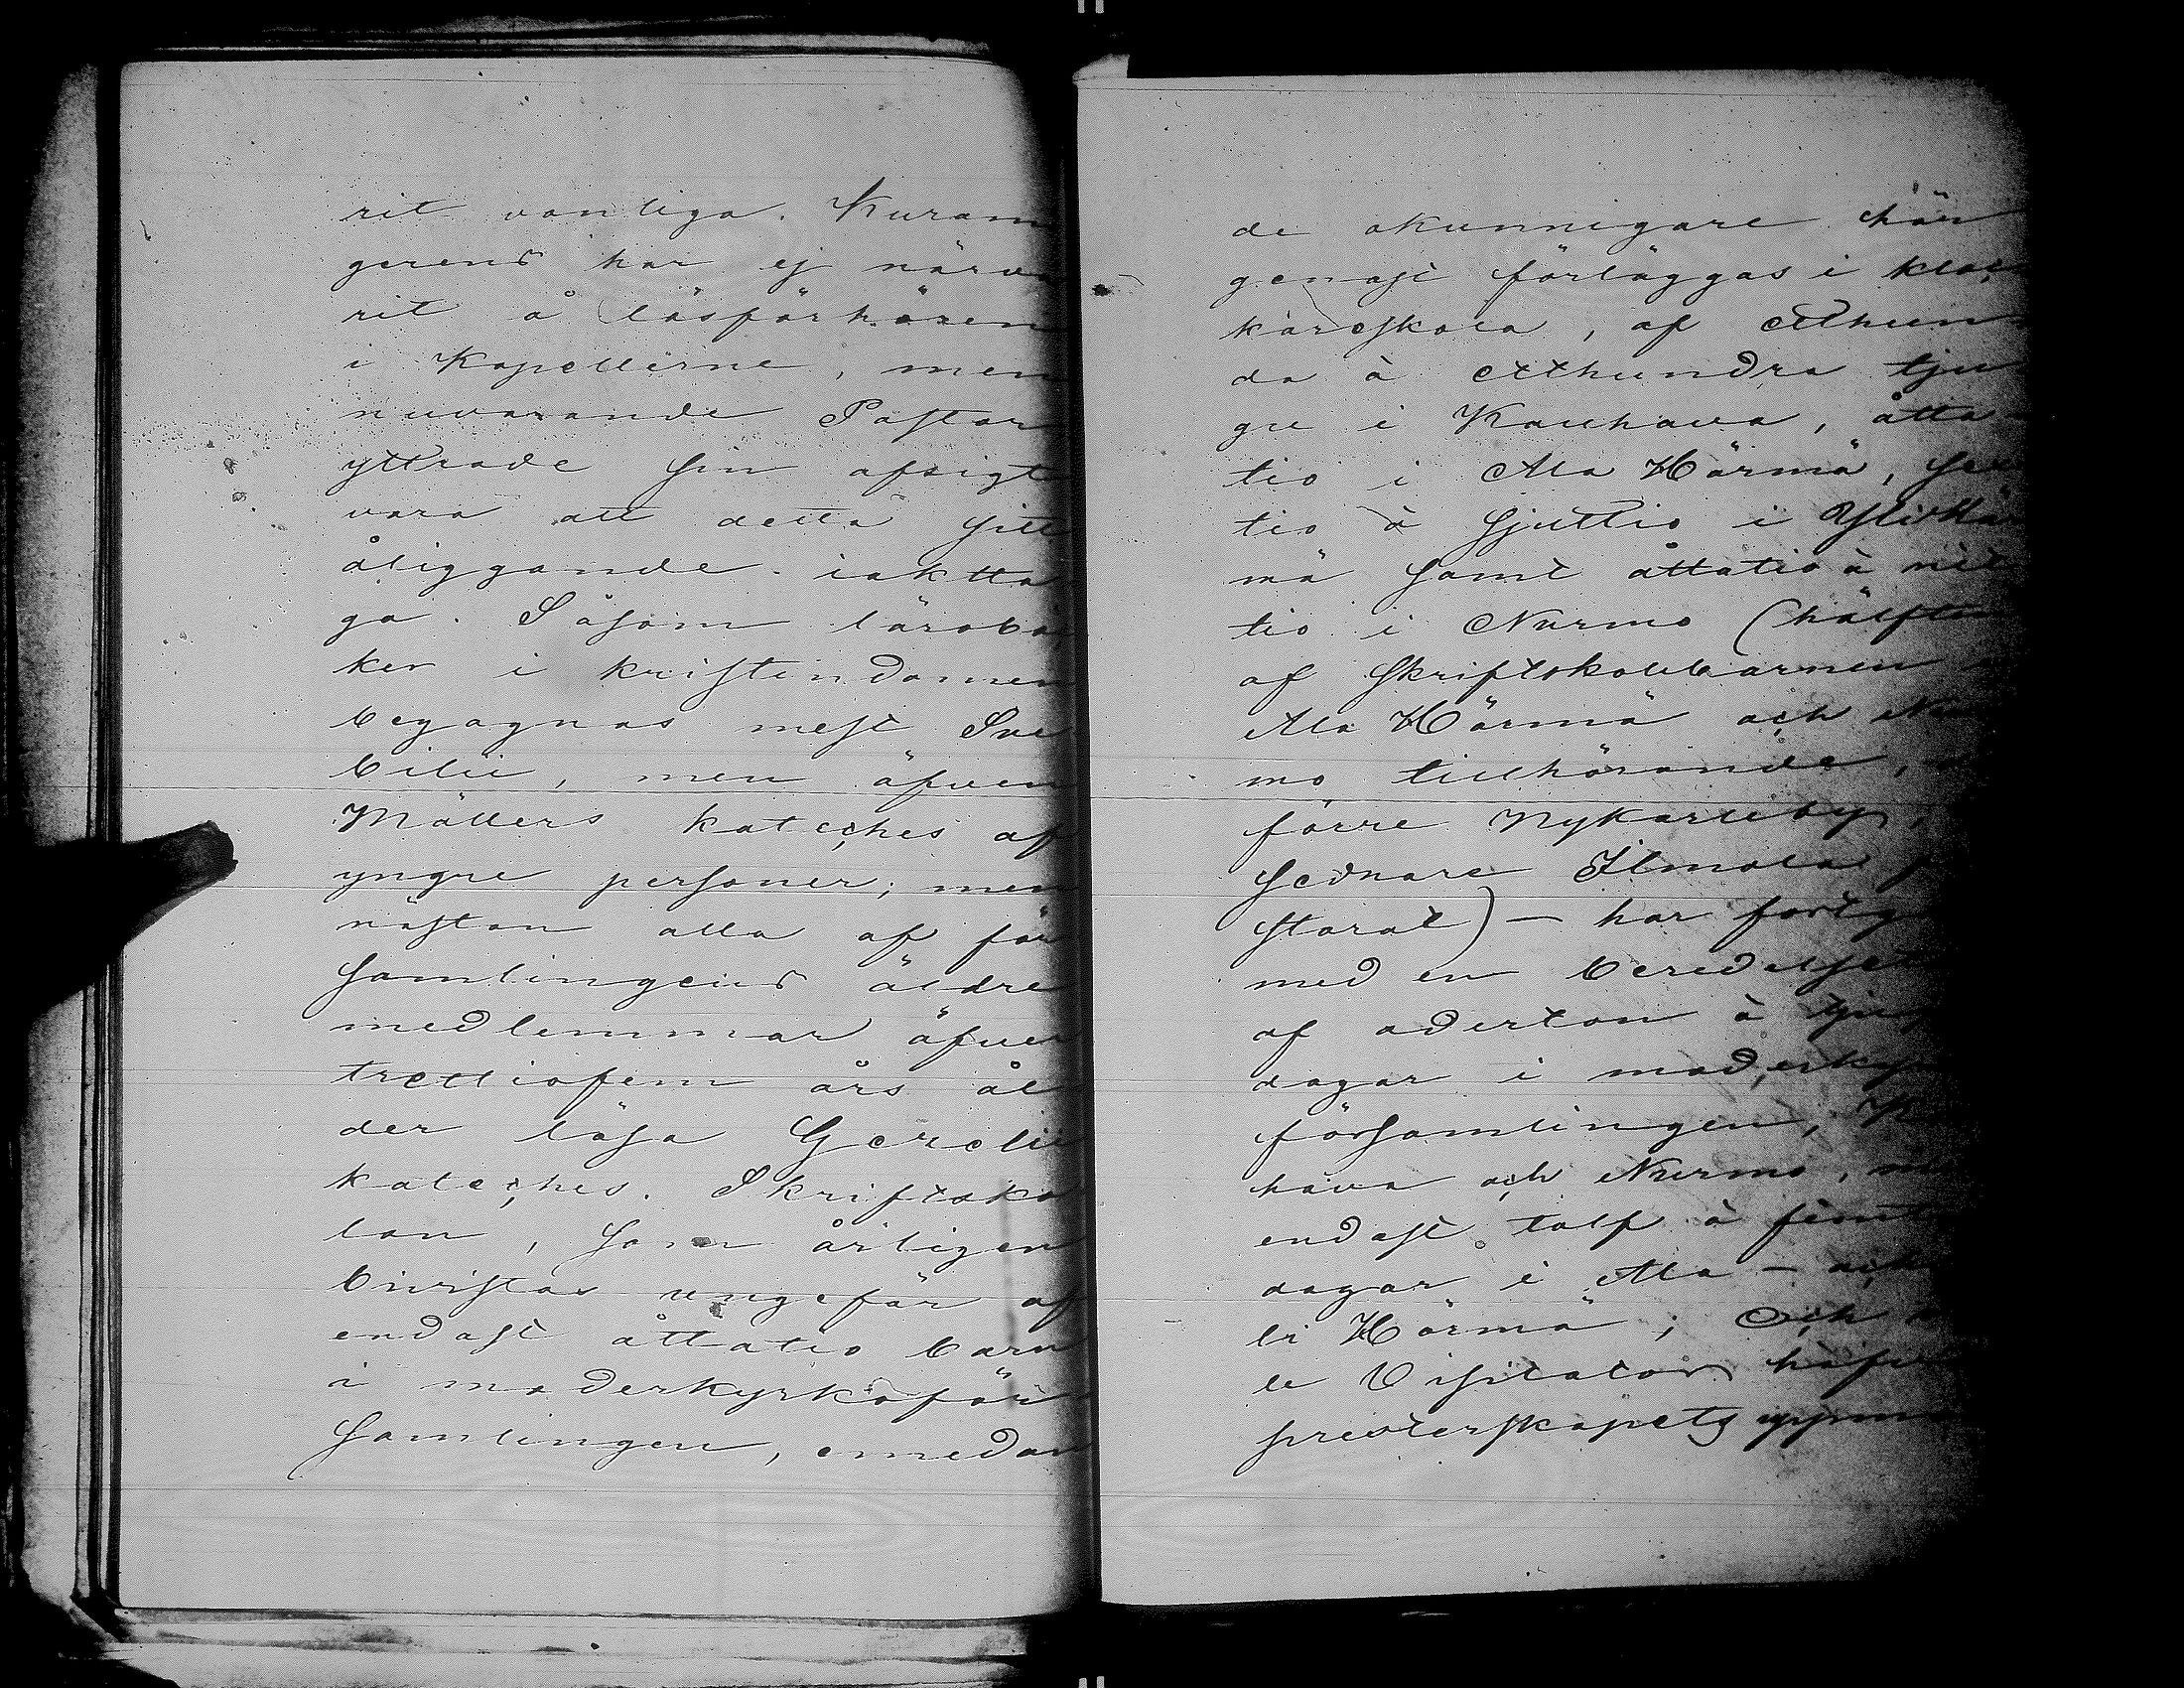 rit vanliga. Kuram
gerens har ej närva
rit å läsförhören
i Kapellerne, men
nuvarande Pastor
yttrade sin afsigt
vara att detta sitt
åliggande iaktta
ga. Såsom lärobö
ker i kristendomen
begagnas mest Sve
bilii, men äfven
Möllers kateches af
yngre personer; men
nästan alla af för
samlingens äldre
medlemmar äfver
trettiofem års ål
der läsa Gerelii
kateches. Skriftsko
lan, som årligen
bivistas ungefär af
endast åttatio barn
i moderkyrkoför
samlingen, emedan
de okunnigare här
genast förläggas i kloc
kareskola, af etthun
da à etthundra tju
gu i Kauhava, åtta
tio i Ala Härmä, sex
tio à sjuttio i Ylihär
mä samt åttatio à nit
tio i Nurmo (hälften
af Skriftskolebarnen
Ala Härmä och Nur
mo tillhörande,
förre Nykarleby,
sednare Ilmola
storat) – har fortg
med en beredelse
af aderton à tju
dagar i moderky
församlingen,
hava och Nurmo,
endast tolf à femt
dagar i Ala – och
li Härmä; Och
le Visitator
presterskapets uppm